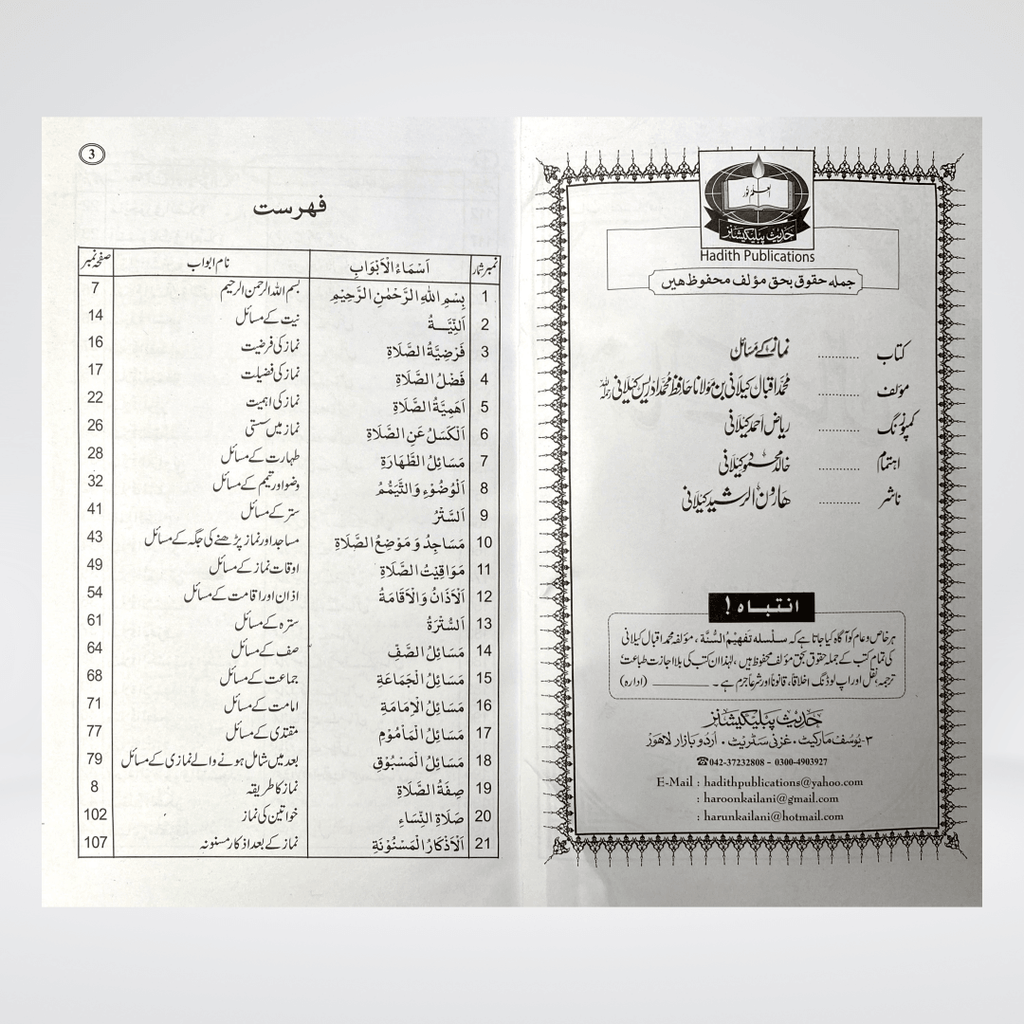 العلم نور
حدیث پبلیکیشنز
Hadith Publications
جملہ حقوق بحق مؤلف محفوظ ھیں
کتاب ............ نماز کے مسائل
مؤلف ............ محمد اقبال کیلانی بن مولانا حافظ محمد ادریس کیلانی رحمہ اللہ
کمپوزنگ ............ ریاض احمد کیلانی
اہتمام ............ خالد محمود کیلانی
ناشر ............ ھارون الرشید کیلانی
انتباہ !
ہر خاص و عام کو آگاہ کیا جاتا ہے کہ سلسلہ تفهیم السنة ، مؤلفہ محمد اقبال کیلانی
کی تمام کتب کے جملہ حقوق بحق مؤلف محفوظ ہیں ، لہٰذا ان کتب کی بلا اجازت طباعت ،
ترجمہ، نقل اور اپ لوڈنگ اخلاقاً، قانوناً اور شرعاً جرم ہے ۔ ________ (ادارہ)
حدیث پبلیکیشنز
۳-یوسف مارکیٹ، غزنی سٹریٹ، اردو بازار لاھور
☎042-37232808 - 0300-4903927
E-Mail : hadithpublications@yahoo.com
: haroonkailani@gmail.com
: harunkailani@hotmail.com
3
فہرست
نمبر شمار اَسْمَاءُ الْاَبْوَابِ نام ابواب صفحہ نمبر
1 بِسْمِ اللهِ الرَّحْمٰنِ الرَّحِيْمِ بسم اللہ الرحمن الرحیم 7
2 اَلنِّيَّــةُ نیت کے مسائل 14
3 فَرْضِيَّةُ الصَّلَاةِ نماز کی فرضیت 16
4 فَضْلُ الصَّلَاةِ نماز کی فضیلت 17
5 اَهَمِيَّةُ الصَّلَاةِ نماز کی اہمیت 22
6 اَلْكَسَلُ عَنِ الصَّلَاةِ نماز میں سستی 26
7 مَسَائِلُ الطَّهَارَةِ طہارت کے مسائل 28
8 اَلْوُضُوْءِ وَالتَّيَمُّمُ وضو اور تیمم کے مسائل 32
9 اَلسَّتْرُ ستر کے مسائل 41
10 مَسَاجِدُ وَمَوْضِعُ الصَّلَاةِ مساجد اور نماز پڑھنے کی جگہ کے مسائل 43
11 مَوَاقِيْتُ الصَّلَاةِ اوقات نماز کے مسائل 49
12 اَلْاَذَانُ وَالْاَقَامَةُ اذان اور اقامت کے مسائل 54
13 اَلسُّتْرَةُ سترہ کے مسائل 61
14 مَسَائِلُ الصَّفِّ صف کے مسائل 64
15 مَسَائِلُ الْجَمَاعَةِ جماعت کے مسائل 68
16 مَسَائِلُ الْاِمَامَةِ امامت کے مسائل 71
17 مَسَائِلُ الْمَأْمُوْمِ مقتدی کے مسائل 77
18 مَسَائِلُ الْمَسْبُوْقِ بعد میں شامل ہونے والے نمازی کے مسائل 79
19 صِفَةُ الصَّلَاةِ نماز کا طریقہ 8
20 صَلَاةِ النِّسَاءِ خواتین کی نماز 102
21 اَلْاَذْكَارُ الْمَسْنُوْنَةِ نماز کے بعد اذکار مسنونہ 107